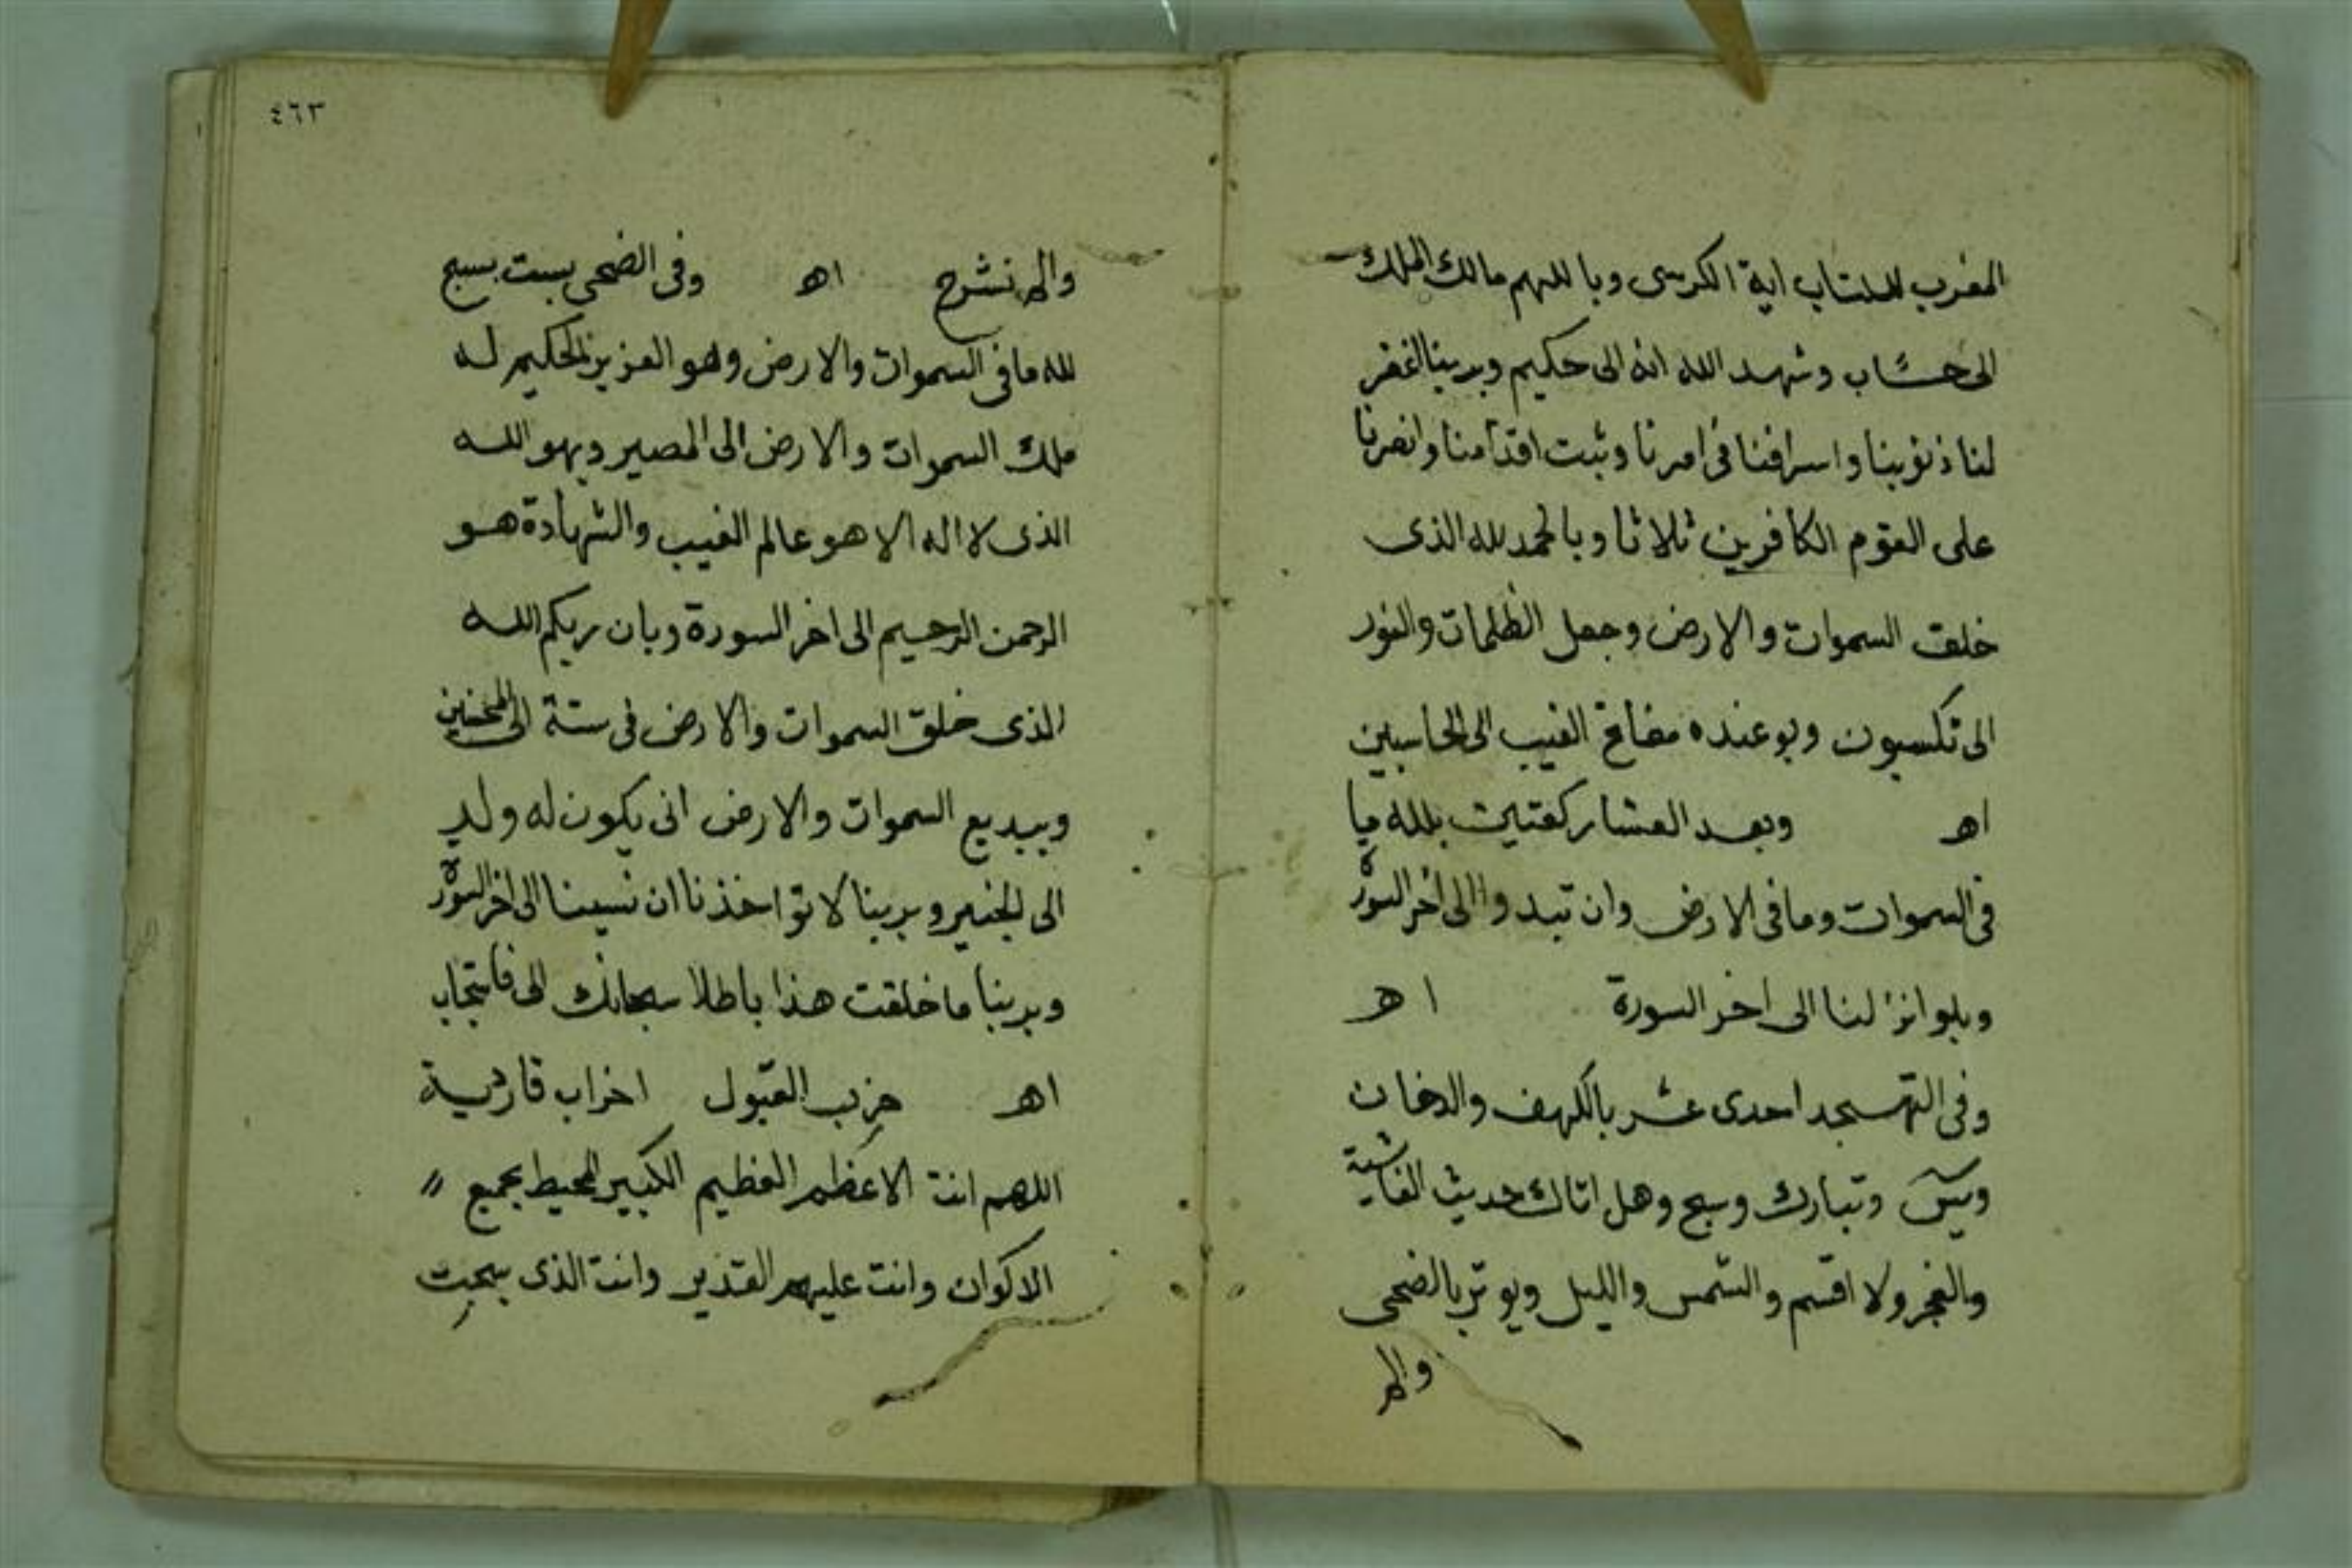 المغرب للستاب اية الكرسى وباللهم مالك الملك
الى حساب وشهد الله انه الى حكيم وبربنا اغفر
لنا ذنوبنا واسرافنا فى امرنا وثبت اقدامنا وانصرنا
على القوم الكافرين ثلاثا وبالحمد لله الذى
خلق السموات والارض وجعل الظلمات والنور
الى تكسبون وبوعنده مفاتح الغيب الى الحاسبين
اهـ وبعد العشا ركعتين بلله ما
فى السموات وما فى الارض وان تبدوا الى اخر السورة
وبلو انزلنا الى اخر السورة اهـ
وفى التهجد احدى عشر بالكهف والدخان
ويس وتبارك وسبح وهل اتاك حديث الغاشية
والفجر ولا اقسم والشمس والليل ويوتر بالضحى
والم
٤٦٣
والم نشرح اهـ وفى الضحى بست بسبح
لله ما فى السموات والارض وهو العزيز الحكيم له
ملك السموات والارض الى المصير وبهو الله
الذى لا اله الا هو عالم الغيب والشهادة هو
الرحمن الرحيم الى اخر السورة وبان ربكم الله
الذى خلق السموات والارض فى ستة الى المحسنين
وببديع السموات والارض انى يكون له ولد
الى الخبير وبربنا لا تؤاخذنا ان نسينا الى اخر السورة
وبربنا ما خلقت هذا باطلا سبحانك الى فاستجاب
اهـ حزب القبول احزاب قادرية
اللهم انت الاعظم العظيم الكبير المحيط بجميع
الاكوان وانت عليهم القدير وانت الذى سجت